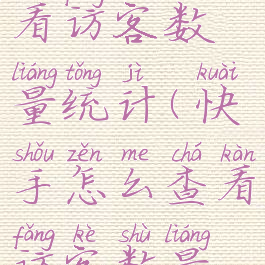 看访客数
liáng tǒng jì kuài
量统计(快
shǒu zěn me chá kàn
手怎么查看
fǎng kè shù liáng
访客数量